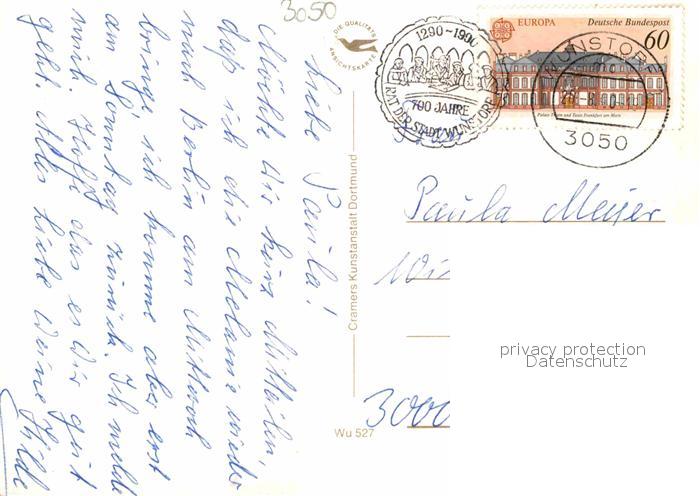 3050
DIE QUALITÄTS
ANSICHTSKARTE
1290-1990
790 JAHRE
RAT DER STADT WUNSTORF
EUROPA Deutsche Bundespost
60
Palais Thurn und Taxis Frankfurt am Main
WUNSTORF
3050
Liebe Paula!
Möchte Dir kurz mitteilen,
daß ich die Melanie wieder
nach Berlin am Mittwoch
bringe, ich komme aber erst
am Sonntag zurück. Ich melde
mich. Hoffe das es Dir gut
geht. Alles liebe Deine Hilde
Cramers Kunstanstalt Dortmund
Wu 527
Paula Meijer
3000
privacy protection
Datenschutz